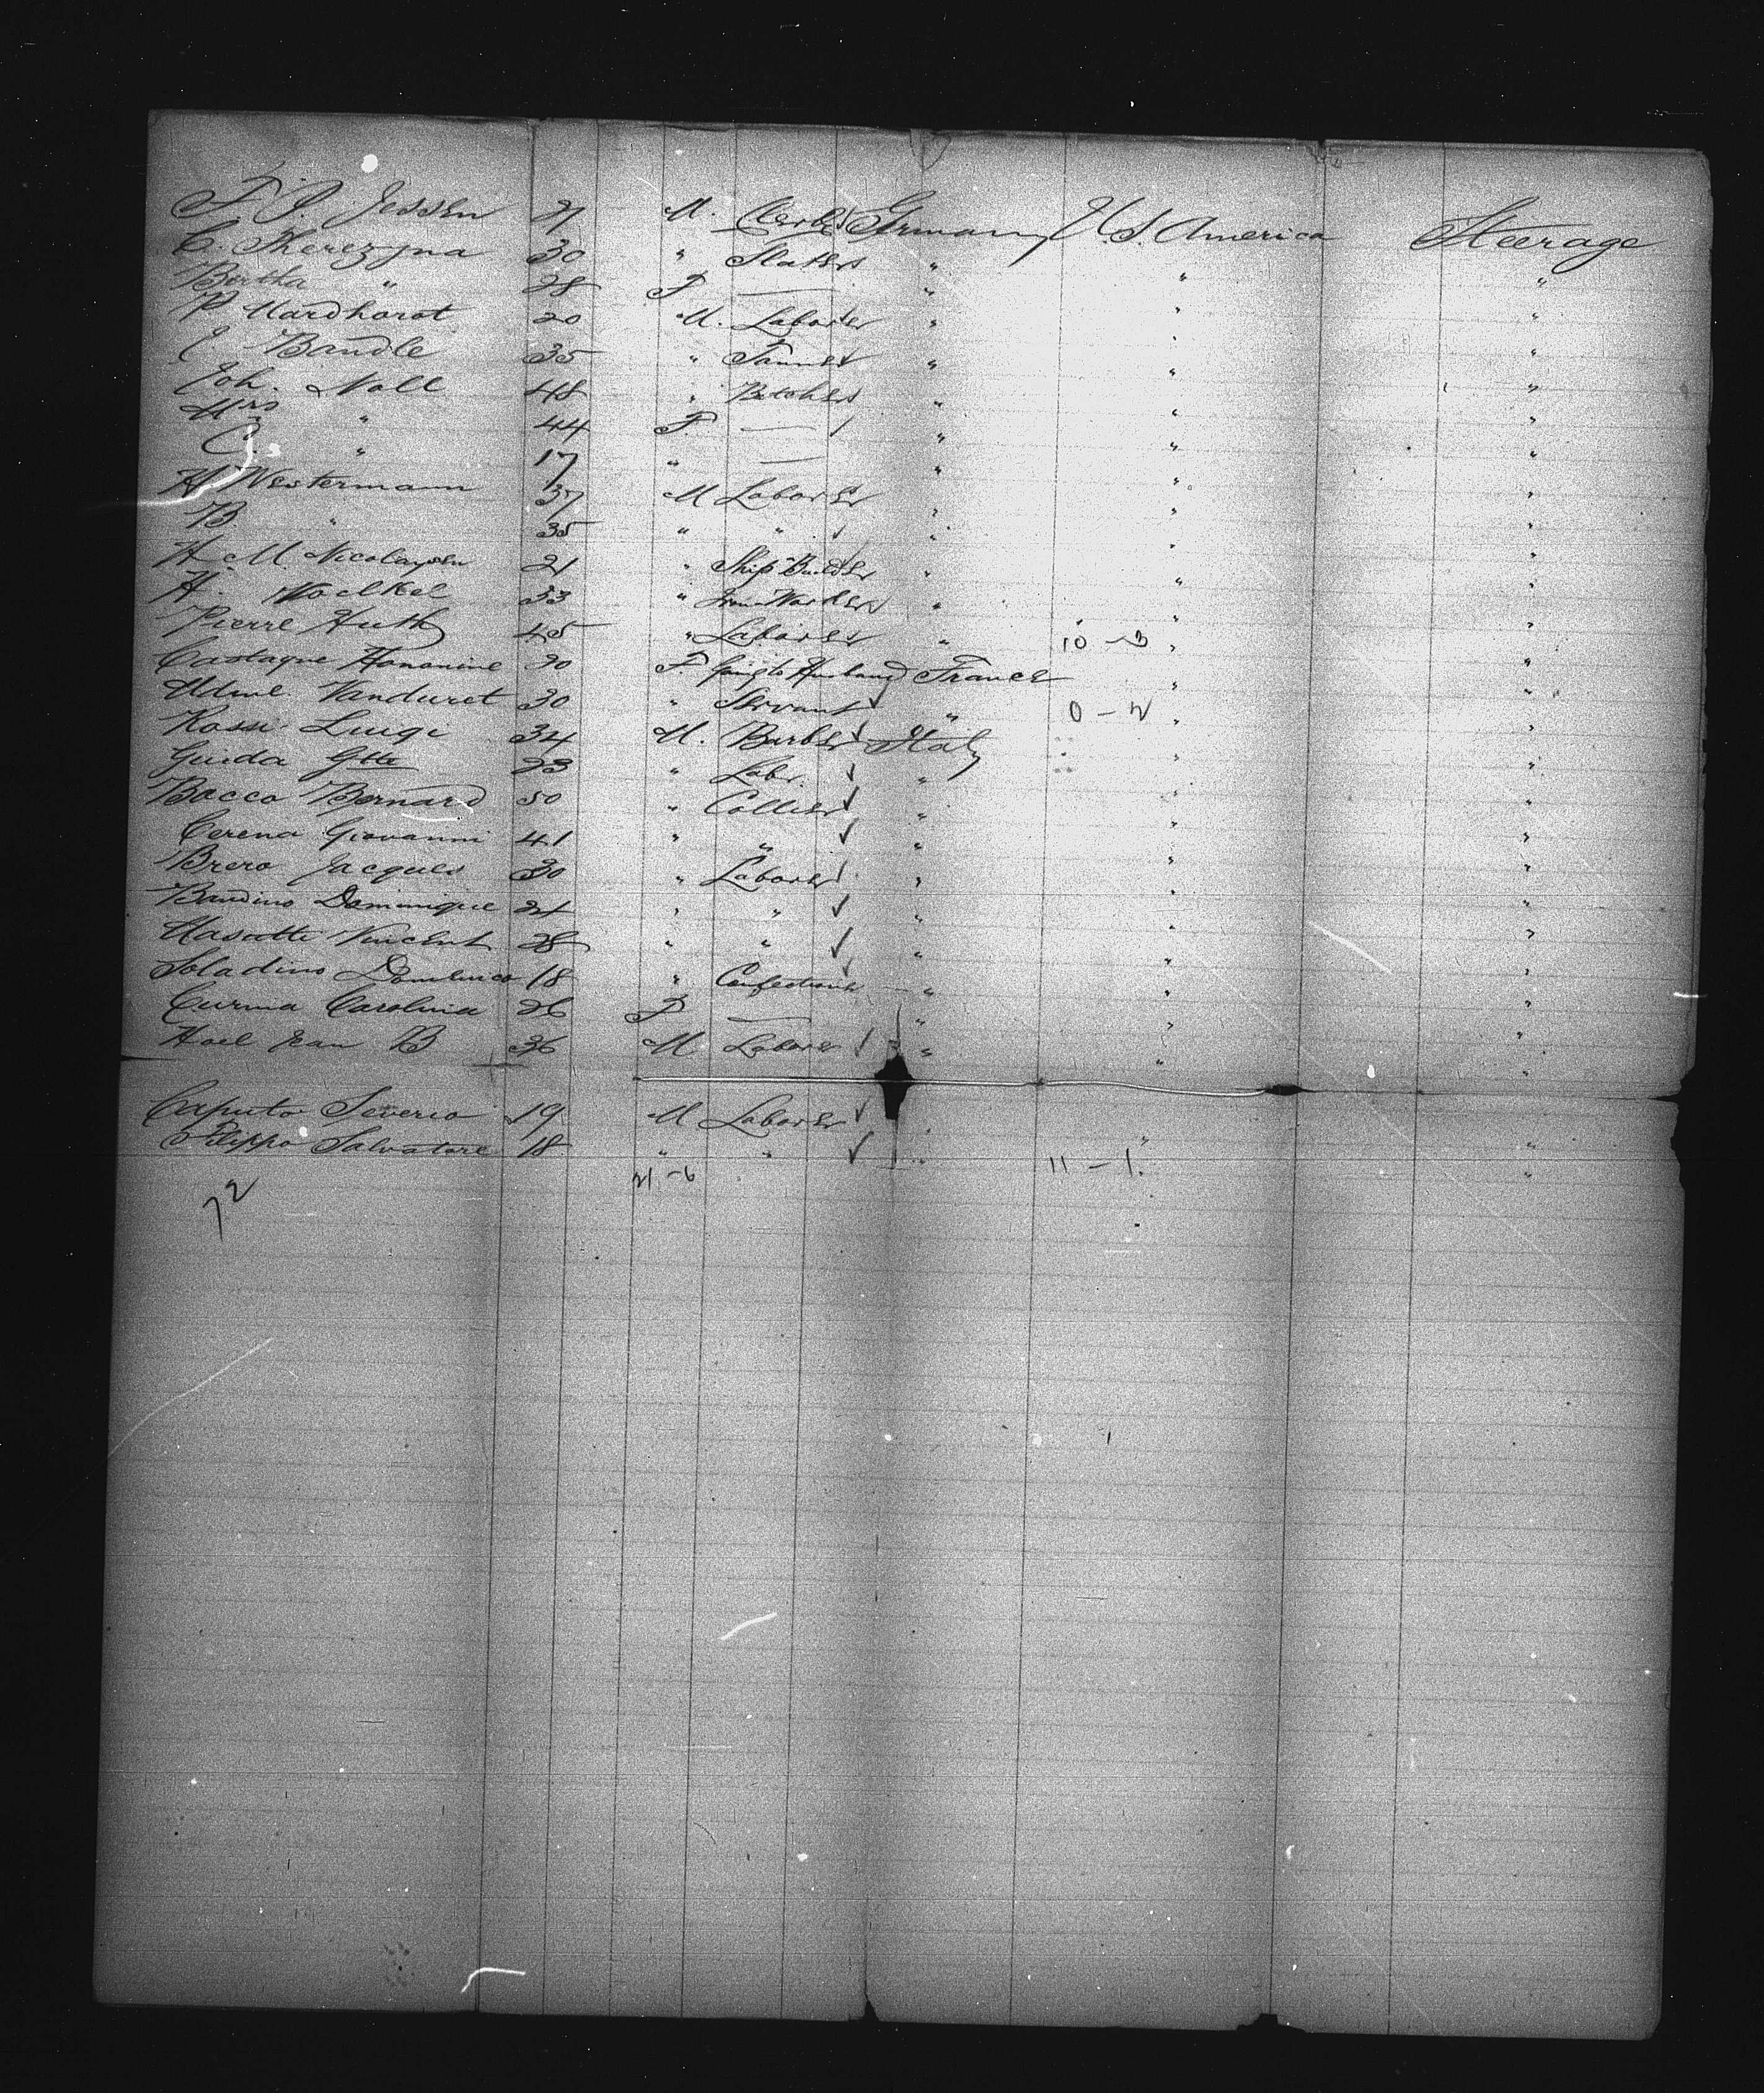 F. J. Jessen 27 M. Clerk Germany U.S. America Steerage
C. Skerezyna 30 " Slater " " "
Bertha " 28 F — " " "
P. Mardhorst 20 M. Laborer " " "
E Bandle 35 " Tanner " " "
Joh. Noll 48 " Butcher " " "
Mrs " 44 F. — " " "
C. " 17 " — " " "
H Westermann 37 M Laborer " " "
B " 35 " " " " "
H. M. Nicolaysen 21 " Ship Builder " " "
H. Voelkel 33 " Iron Worker " " "
Pierre Huth 45 " Laborer " 10 - 3 " "
Castagne 30 F. Going to Husband France " "
Mdme. Vanduret 30 " Servant " 0 - 2 " "
Rossi Luigi 34 M. Barber Italy " "
Guida 23 " Labr. " " "
Bocca Bernard 50 " Collier " " "
Cerena Giovanni 41 " " " " "
Brero Jacques 30 " Laborer " " "
Baudino Dominique 24 " " " " "
Mascotte Vincent 28 " " " " "
Soladino Domenico 18 " Confectioner " " "
Curma Carolina 26 F — " " "
Hoel Jean B 36 M Laborer " " "
Caputo Severio 19 M Laborer " " "
Filippo Salvatore 18 " " " 11 - 1. "
21 - 6
72